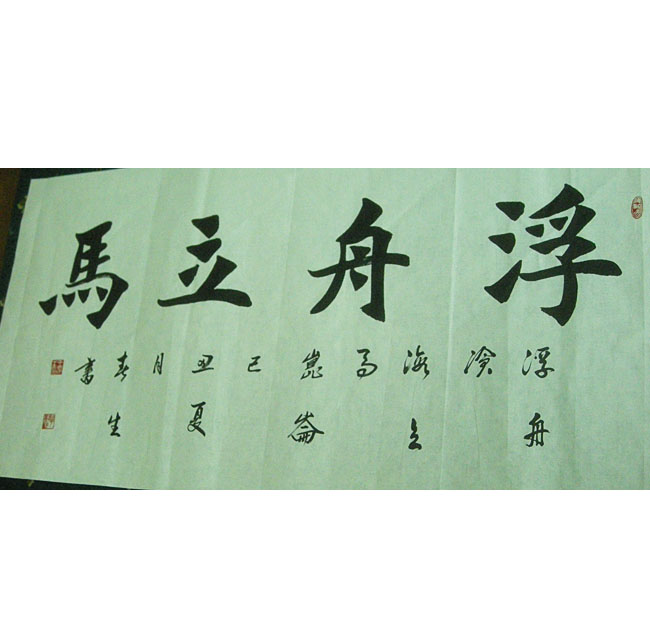 浮舟立馬
浮舟
沧
海立
马
崑崙
己
丑夏
月
春生
書